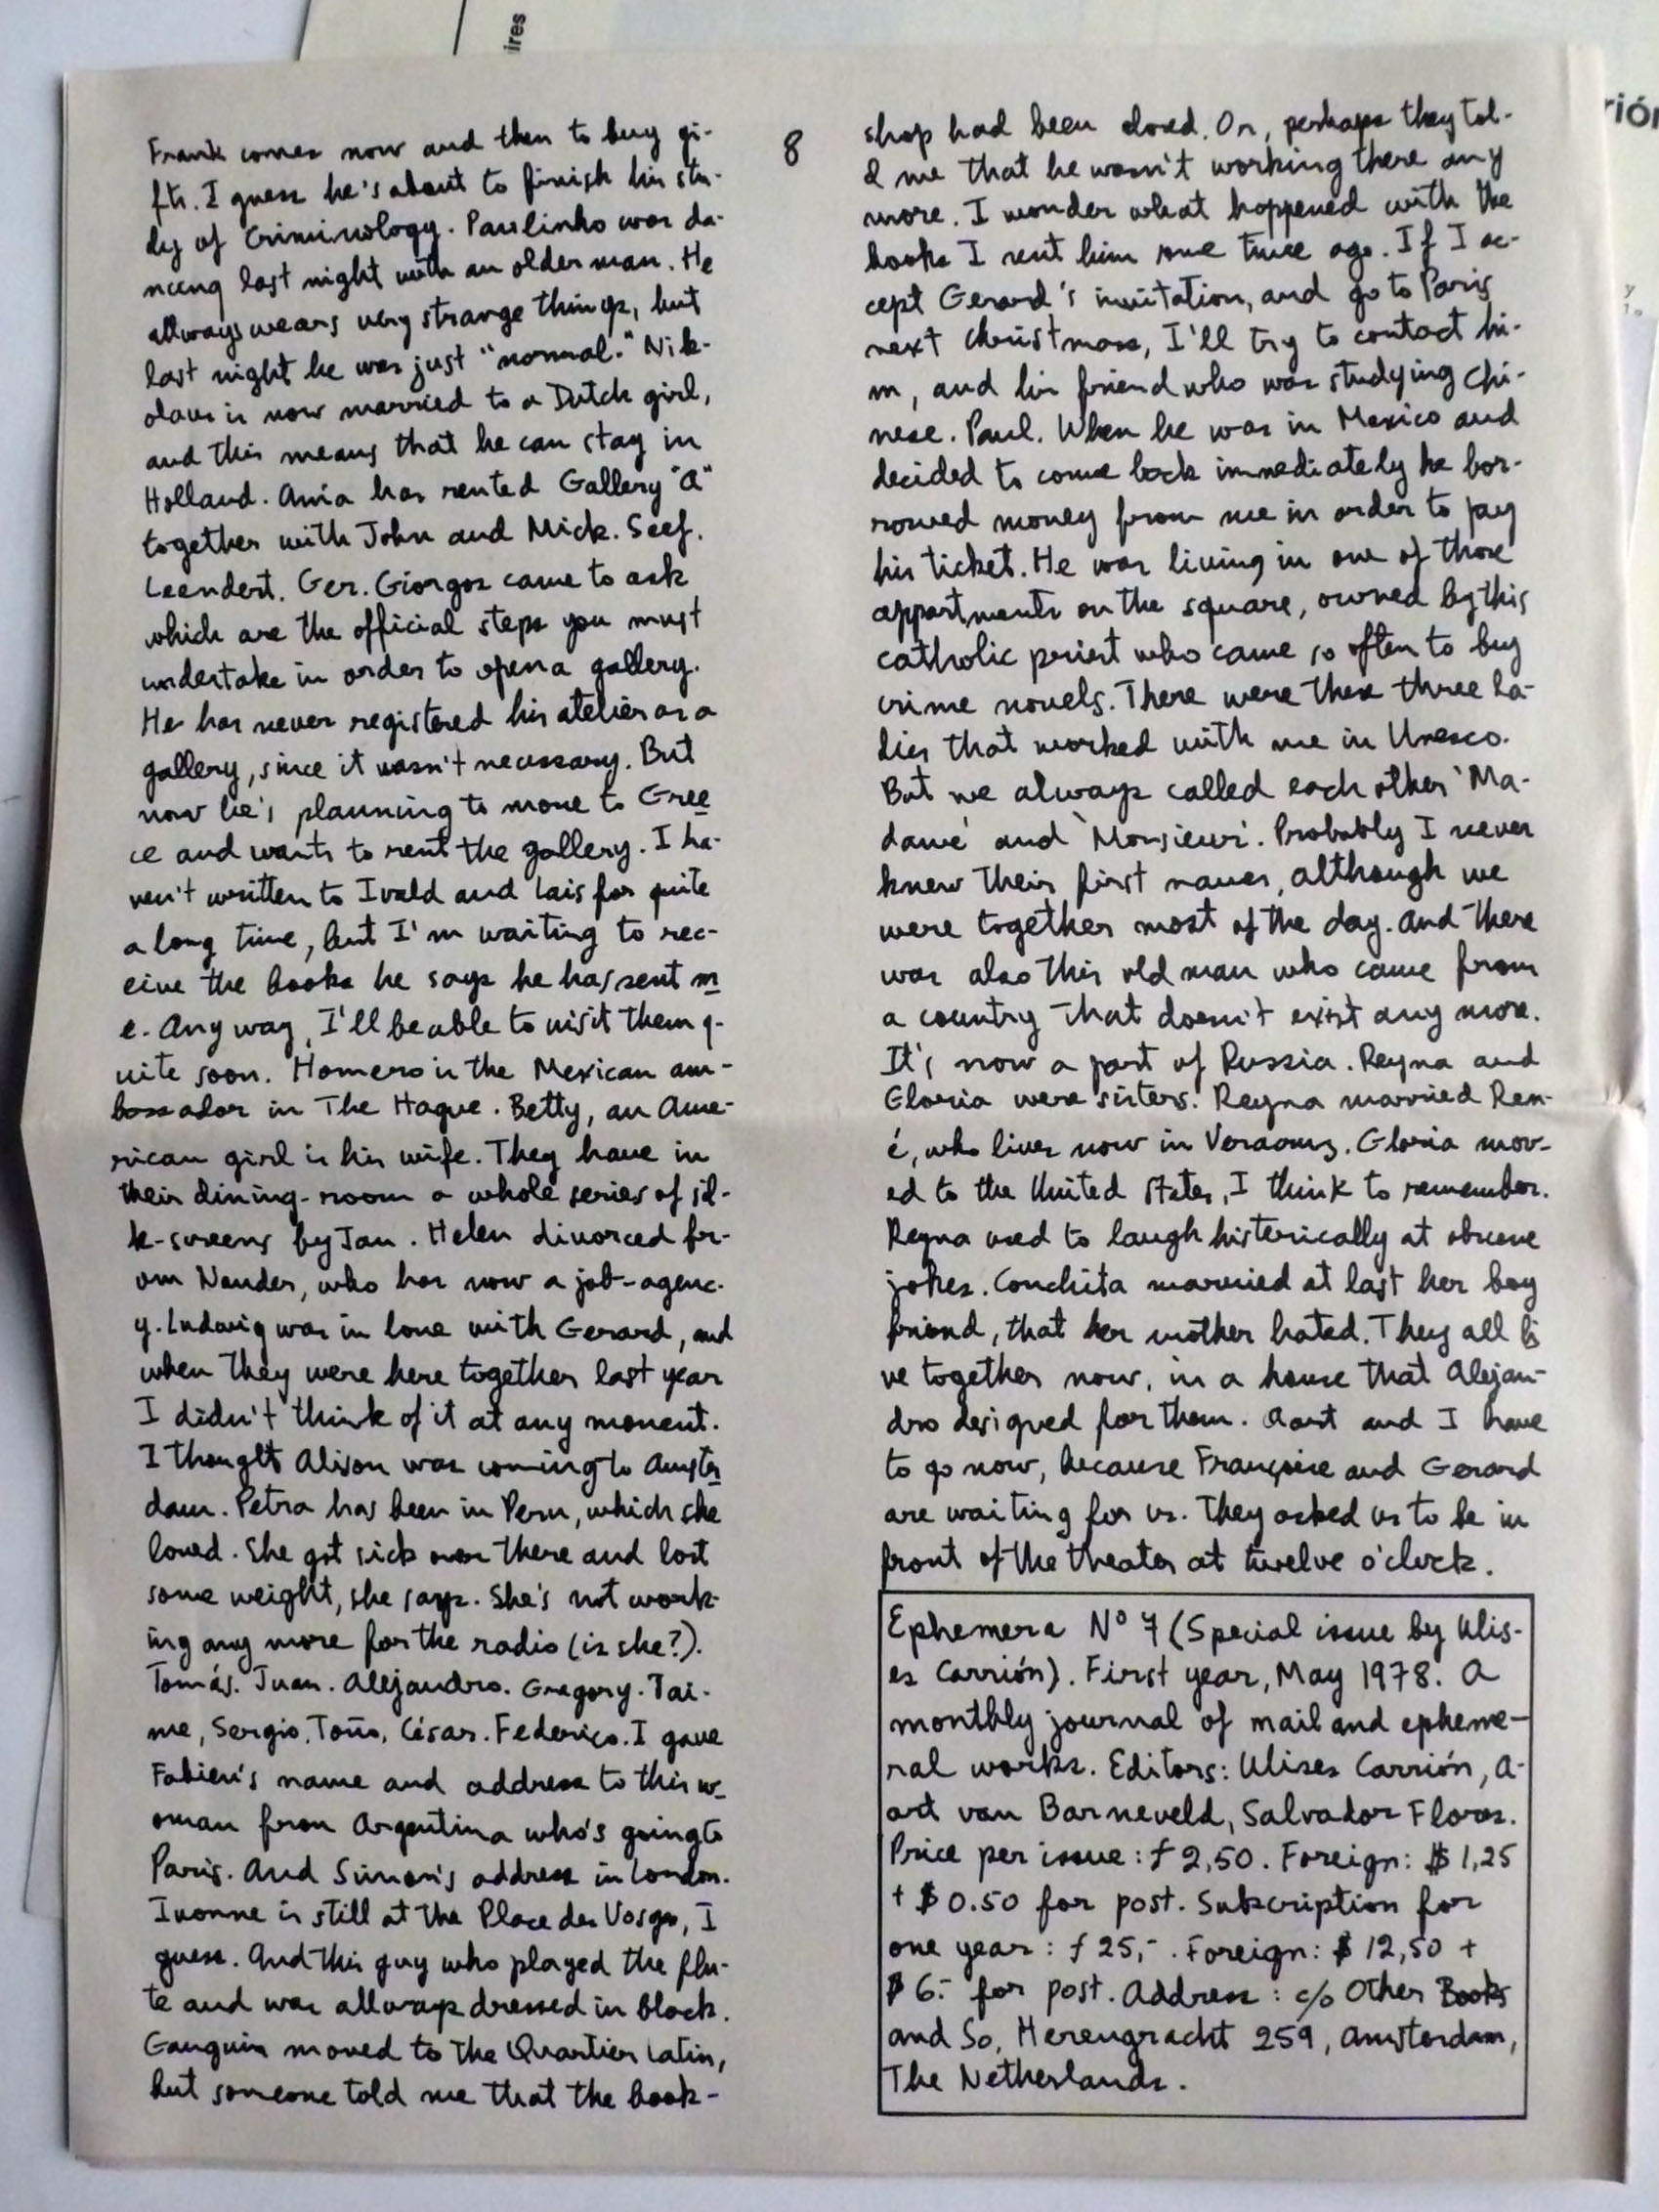 ires
rión
8
Frank comes now and then to buy gi-
fts. I guess he's about to finish his stu-
dy of Criminology. Paulinho was da-
ncing last night with an older man. He
allways wears very strange things, but
last night he was just "normal." Nik-
olaus is now married to a Dutch girl,
and this means that he can stay in
Holland. Ania has rented Gallery "A"
together with John and Mick. Seef.
Leendert. Ger. Giorgos came to ask
which are the official steps you must
undertake in order to open a gallery.
He has never registered his atelier as a
gallery, since it wasn't necessary. But
now he's planning to move to Gree
ce and wants to rent the gallery. I ha-
ven't written to Ivald and Lais for quite
a long time, but I'm waiting to rec-
eive the books he says he has sent m
e. Any way, I'll be able to visit them q-
uite soon. Homero is the Mexican am-
bassador in The Hague. Betty, an Ame-
rican girl is his wife. They have in
their dining-room a whole series of sil-
k-screens by Jan. Helen divorced fr-
om Nander, who has now a job-agenc-
y. Ludwig was in love with Gerard, and
when they were here together last year
I didn't think of it at any moment.
I thought Alison was coming to Amster
dam. Petra has been in Peru, which she
loved. She got sick over there and lost
some weight, she says. She's not work-
ing any more for the radio (is she?).
Tomás. Juan. Alejandro. Gregory. Jai-
me, Sergio, Toño, César. Federico. I gave
Fabien's name and address to this w
oman from Argentina who's going to
Paris. And Simon's address in London.
Ivonne is still at the Place des Vosges, I
guess. And this guy who played the flu-
te and was allways dressed in black.
Gauguin moved to the Quartier Latin,
but someone told me that the book-
shop had been closed. Or, perhaps they tol-
d me that he wasn't working there any
more. I wonder what happened with the
books I sent him some time ago. If I ac-
cept Gerard's invitation, and go to Paris
next Christmas, I'll try to contact hi-
m, and his friend who was studying Chi-
nese. Paul. When he was in Mexico and
decided to come back immediately he bor-
rowed money from me in order to pay
his ticket. He was living in one of those
appartments on the square, owned by this
catholic priest who came so often to buy
crime novels. There were these three la-
dies that worked with me in Unesco.
But we always called each other 'Ma-
dame' and 'Monsieur'. Probably I never
knew their first names, although we
were together most of the day. And there
was also this old man who came from
a country that doesn't exist any more.
It's now a part of Russia. Reyna and
Gloria were sisters. Reyna married Ren-
é, who lives now in Veracruz. Gloria mov-
ed to the United States, I think to remember.
Reyna used to laugh histerically at obscene
jokes. Conchita married at last her boy
friend, that her mother hated. They all li
ve together now, in a house that Alejan-
dro designed for them. Aart and I have
to go now, because Françoise and Gerard
are waiting for us. They asked us to be in
front of the theater at twelve o'clock.
Ephemera Nº 7 (Special issue by Ulis-
es Carrión). First year, May 1978. A
monthly journal of mail and epheme-
ral works. Editors: Ulises Carrión, A-
art van Barneveld, Salvador Flores.
Price per issue: f 2,50. Foreign: $ 1,25
+ $ 0.50 for post. Subscription for
one year: f 25,-. Foreign: $ 12,50 +
$ 6.- for post. Address: c/o Other Books
and So, Herengracht 259, Amsterdam,
The Netherlands.